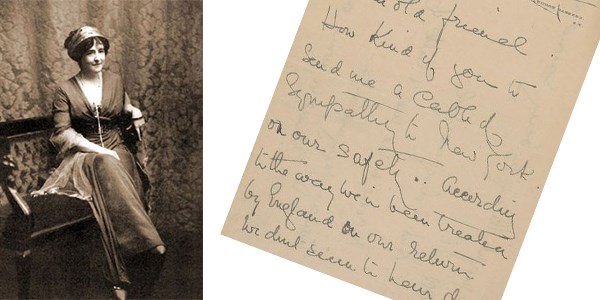 old friend.
How kind of you to
send me a Cable of
Sympathy to New York
on our safety:. According
to the way we've been treated
by England on our return
we didn't seem to have d